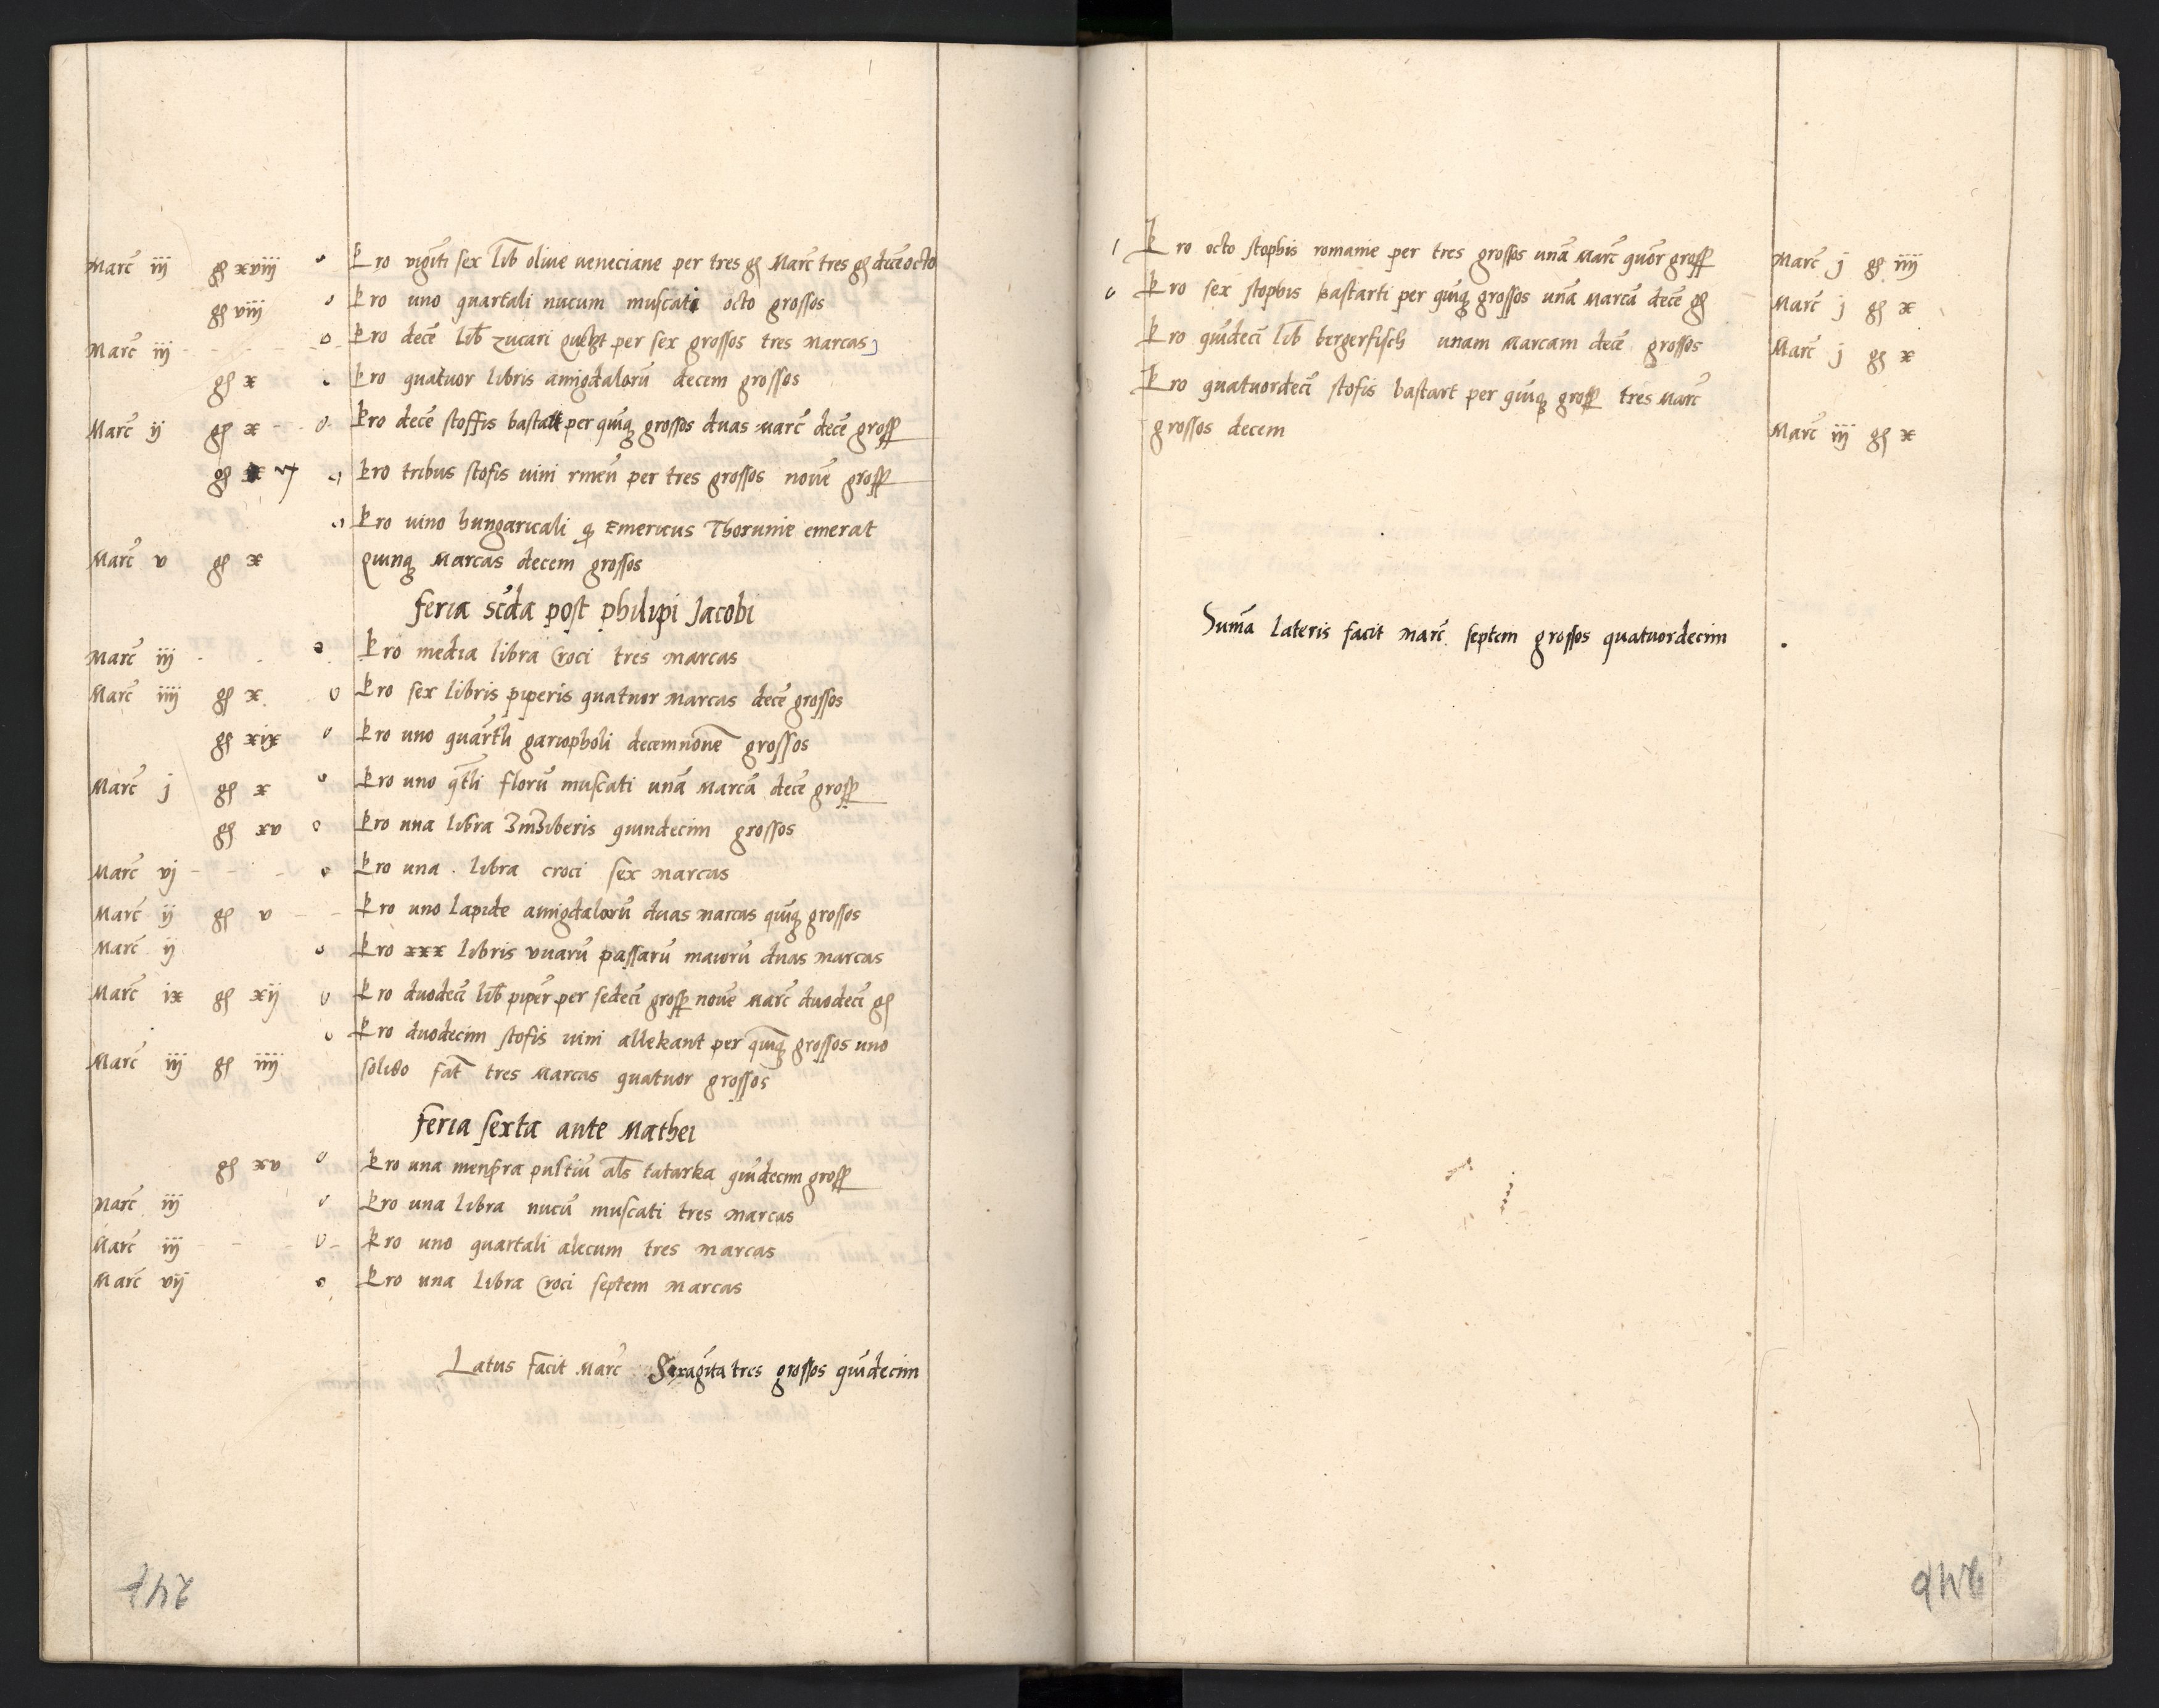 Marc̄ iij gß xviij Pro vigīti sex lib̄ olive veneciane per tres gß Marc̄ tres gß decē octo
gß viij Pro uno quartali nucum muscati octo grossos
Marc̄ iij Pro decē lib̄ zucari per sex grossos tres Marcas
gß x Pro quatuor libris amigdalorū decem grossos
Marc̄ ij gß x Pro decē stoffis bastart per quīq3 grossos duas Marc̄ decē gross
gß Pro tribus stofis vini rinēn per tres grossos novē gross
Pro vino hungaricali q Emericus Thorunie emerat
Marc̄ v gß x Quinq3 Marcas decem grossos
feria sc̄da post philipi Jacobi
Marc̄ iij Pro media libra Croci tres marcas
Marc̄ iiij gß x Pro sex libris piperis quatuor Marcas decē grossos
gß xix Pro uno quārtli gariopholi decemnōne grossos
Marc̄ j gß x Pro uno q̄tli florū muscati unā Marcā decē gross
gß xv Pro una libra Zinziberis quindecim grossos
Marc̄ vj Pro una libra croci sex marcas
Marc̄ ij gß v Pro uno lapide amigdalorū duas marcas quīq3 grossos
Marc̄ ij Pro xxx libris vvarū passarū maiorū duas marcas
Marc̄ ix gß xij Pro duodecī lib̄ piper̄ per sedecī gross novē Marc̄ duodecī gß
Pro duodecim stofis vini allekant per quīq3 grossos uno
Marc̄ iij gß iiij solido fat̄ tres Marcas quatuor grossos
feria sexta ante Mathei
gß xv Pro una mensura pultiū al̄s tatarka quīdecim gross
Marc̄ iij Pro una libra nucū muscati tres marcas
Marc̄ iij Pro uno quartali alecum tres marcas
Marc̄ vij Pro una libra Croci septem marcas
Latus facit Marc̄ Sexagīta tres grossos quīdecim
247
Pro octo stophis romanie per tres grossos unā Marc̄ quōr gross Marc̄ j gß iiij
Pro sex stophis bastarti per quīq3 grossos unā Marcā decē gß Marc̄ j gß x
Pro quīdecī lib̄ bergerfisch unam Marcam decē grossos Marc̄ j gß x
Pro quatuordecī stofis bastart per quīq3 gross tres Marc̄
grossos decem Marc̄ iij gß x
Sumā lateris facit marc̄ septem grossos quatuordecim